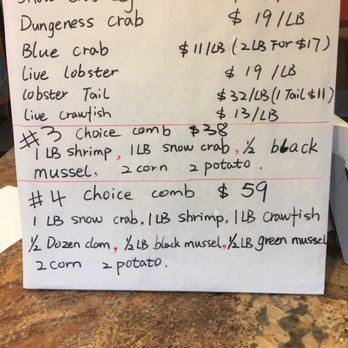 Dungeness crab $19/LB
Blue crab $11/LB (2LB For $17)
Live lobster $19/LB
lobster Tail $32/LB (1 Tail $11)
Live crawfish $13/LB
#3 Choice comb $38
1 LB shrimp, 1LB snow crab, ½ black
mussel, 2 corn 2 potato.
#4 Choice comb $59
1 LB snow crab, 1LB shrimp, 1LB Crawfish
½ Dozen clam, ½LB black mussel, ½LB green mussel
2 corn 2 potato.